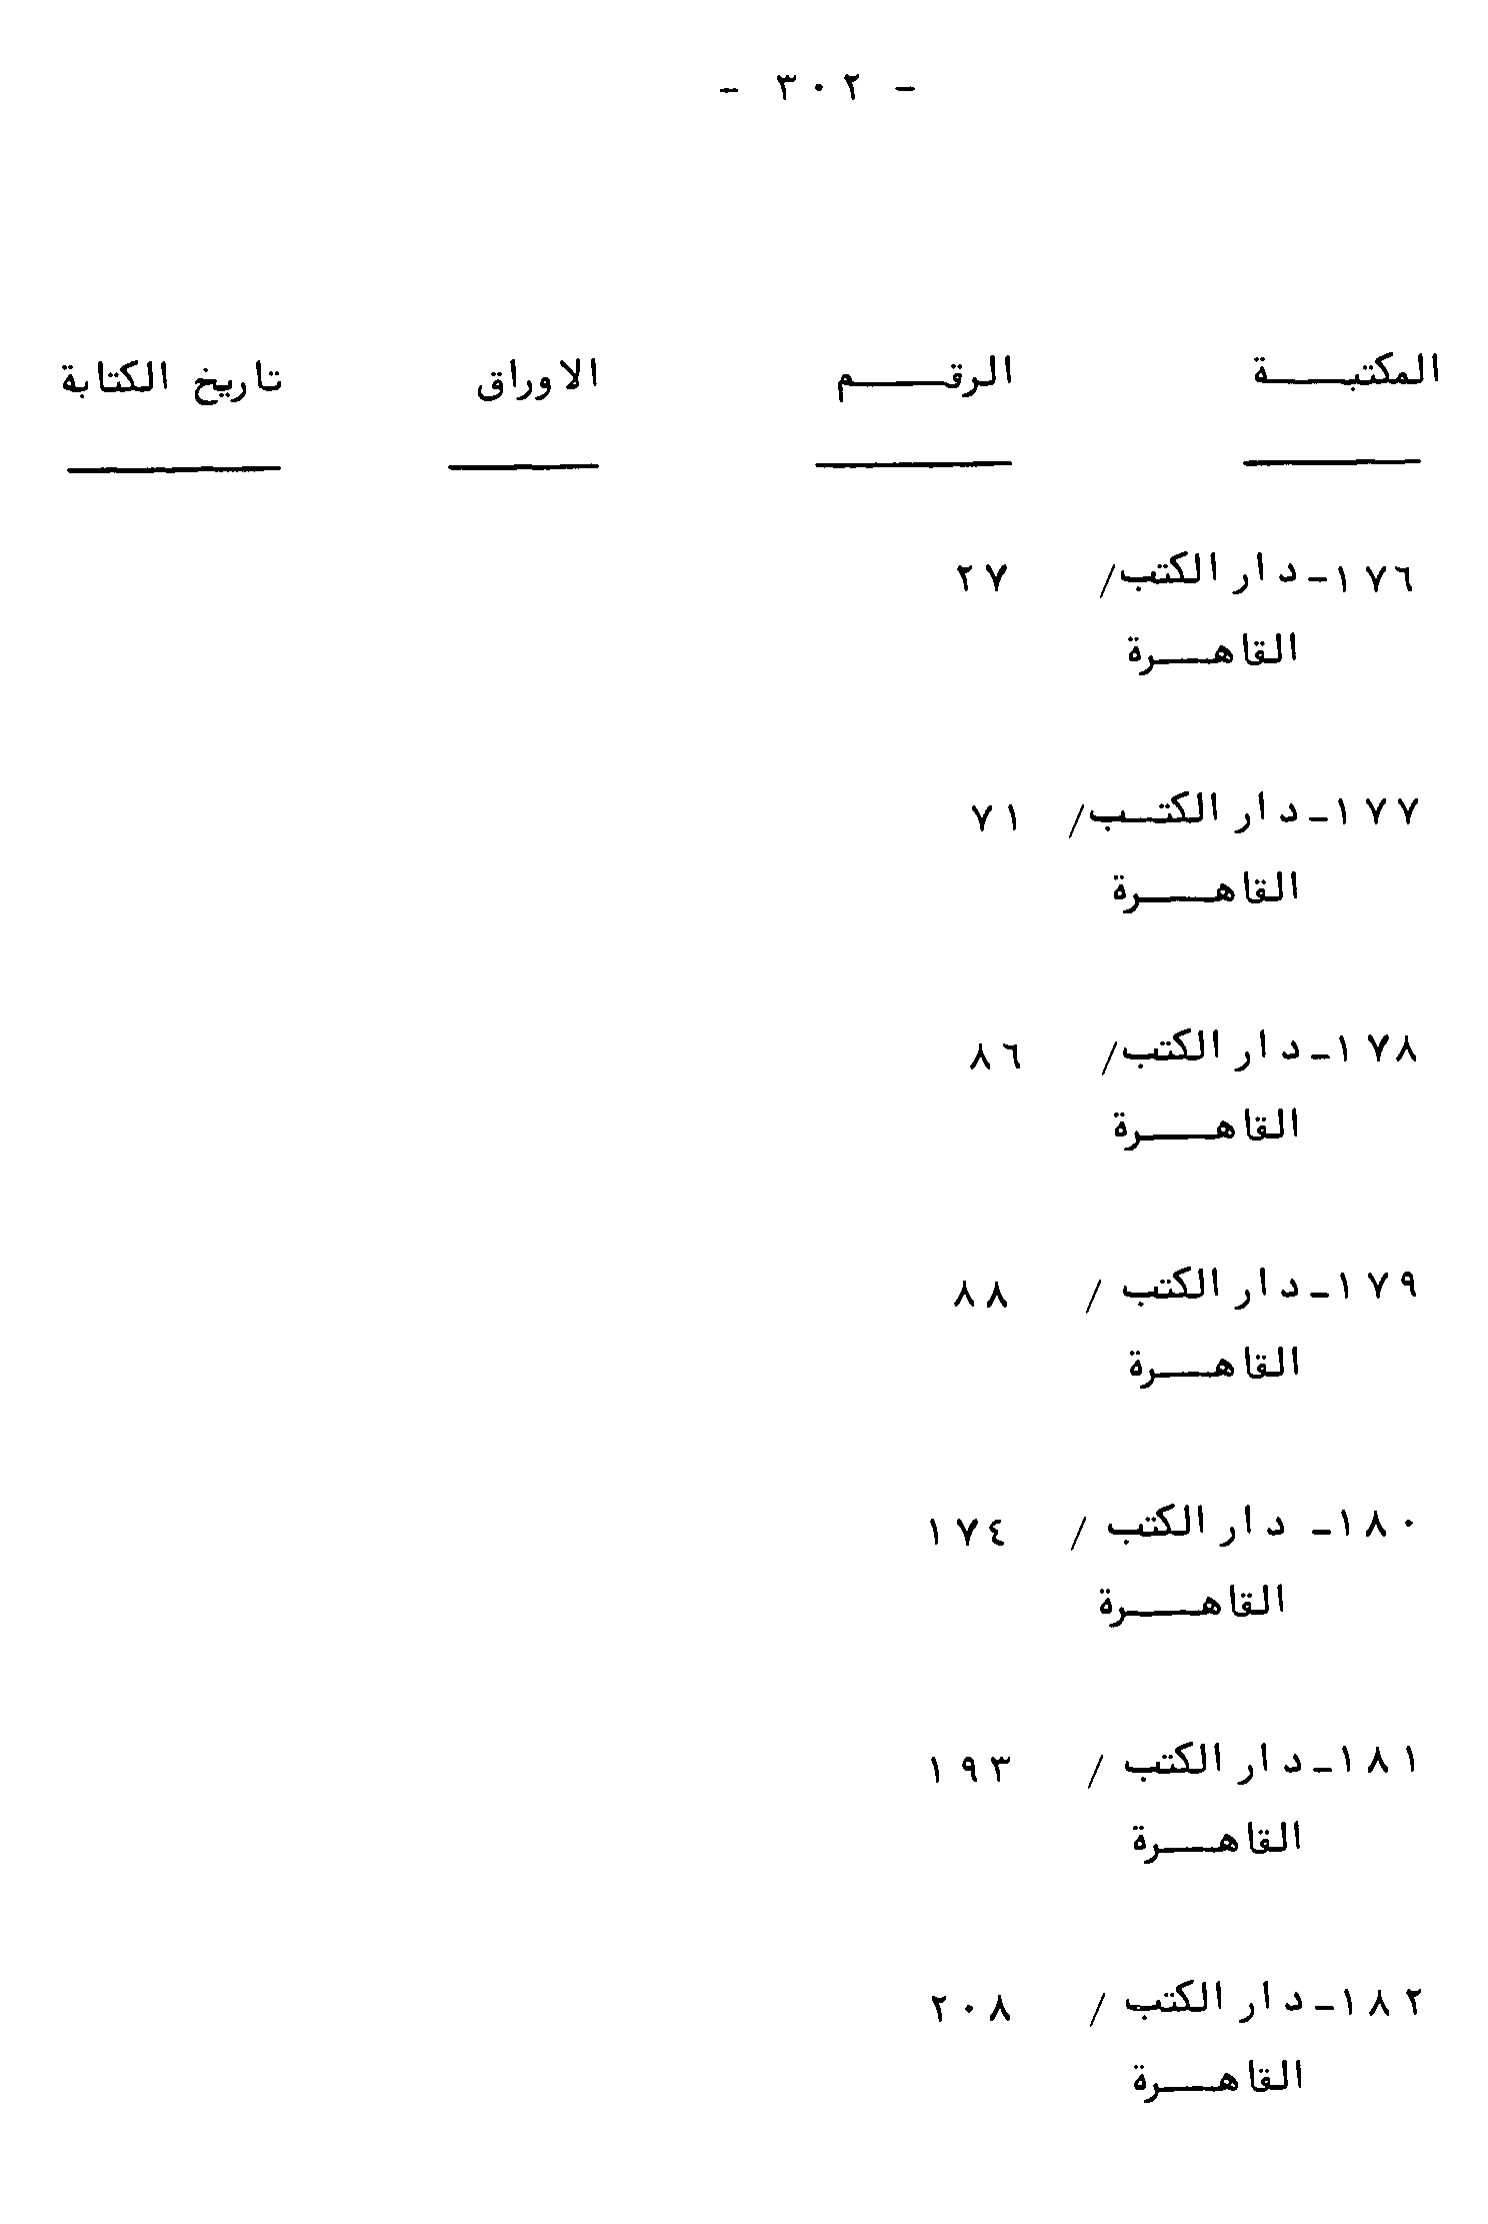 - ٣٠٢ -
المكتبة الرقم الاوراق تاريخ الكتابة
١٧٦- دار الكتب/ ٢٧
القاهرة
١٧٧- دار الكتب/ ٧١
القاهرة
١٧٨- دار الكتب/ ٨٦
القاهرة
١٧٩- دار الكتب / ٨٨
القاهرة
١٨٠- دار الكتب / ١٧٤
القاهرة
١٨١- دار الكتب / ١٩٣
القاهرة
١٨٢- دار الكتب / ٢٠٨
القاهرة